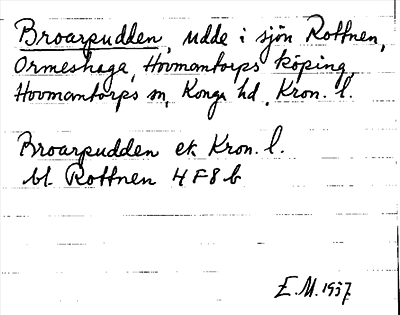 Broarpudden, udde i sjön Rottnen,
Ormeshaga, Hovmantorps köping,
Hovmantorps sn, Konga hd, Kron. l.
Broarpudden ek Kron. l.
bl. Rottnen 4 F 8 b
E.M. 1937.